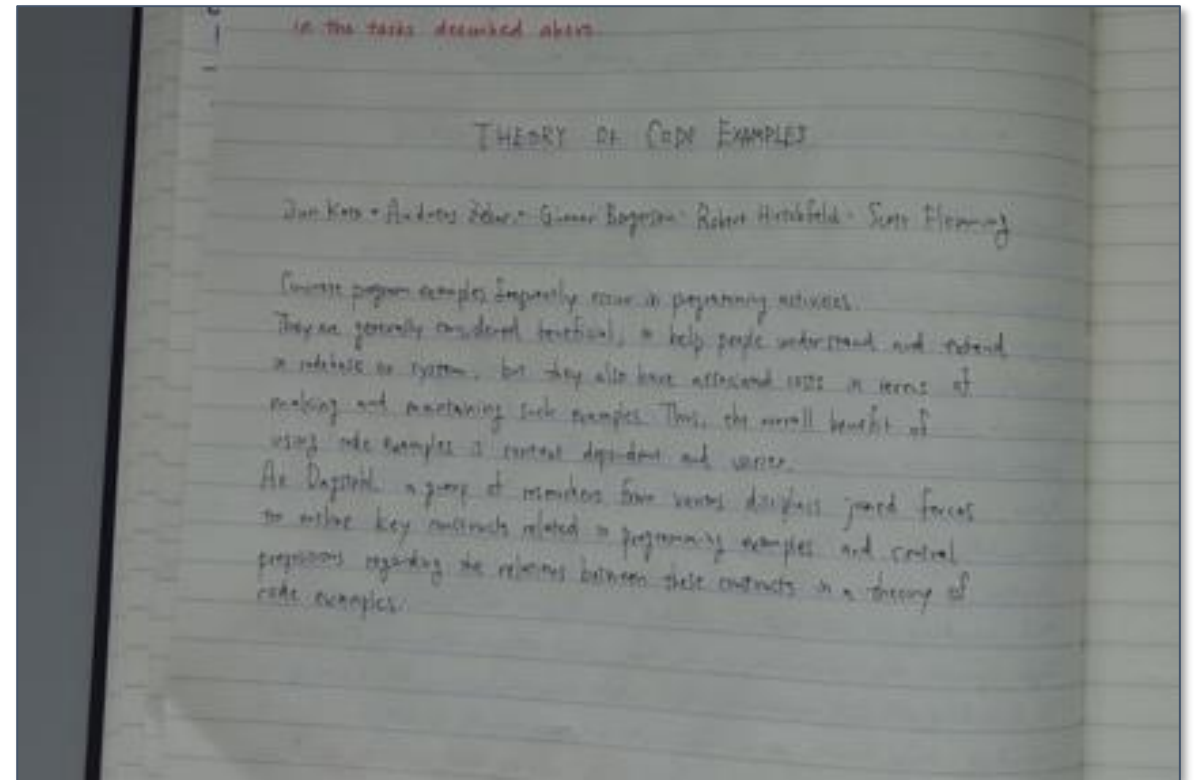 in the tasks described above
THEORY OF CODE EXAMPLES
Jun Kato · Andreas · Gunnar Bergersen · Robert Hirschfeld · Scott Fleming
Concrete program examples frequently occur in programming activities.
They are generally considered beneficial, to help people understand and extend
a codebase or system, but they also have associated costs in terms of
making and maintaining such examples. Thus, the overall benefit of
using code examples is context dependent and varies.
At Dagstuhl, a group of researchers from various disciplines joined forces
to outline key constructs related to programming examples and central
propositions regarding the relations between these constructs in a theory of
code examples.